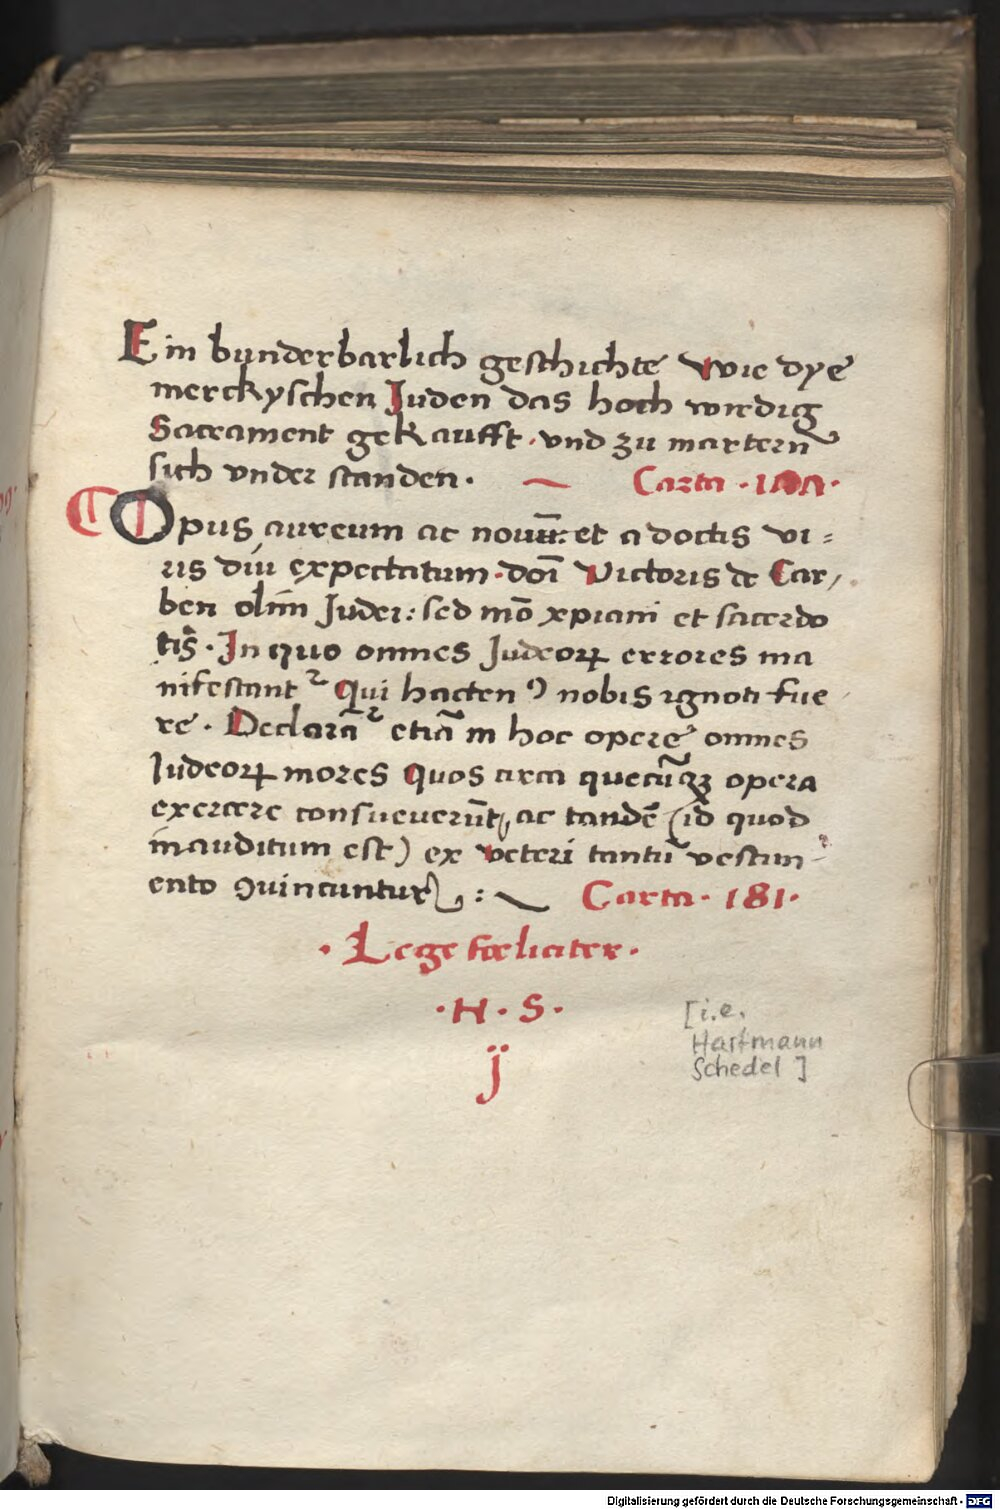 Ein bunderbarlich geschichte Wie dye
merckyschen Juden das hoch wirdig
Sacrament gekaufft. vnd zu martern
sich vnder standen. Carta
Opus aureum ac novum et a doctis vi=
ris diu expectatum. doī Victoris de Car/
ben olim Judei: sed mō xpiani et sacerdo
tis. In quo omnes Judeoꝝ errores ma
nifestant᷑ Qui hacten⁹ nobis ignoti fue
re. Declarāt᷑ etiā in hoc opere omnes
Judeoꝝ mores quos circa quecūqꝫ opera
exercere consueuerūt, ac tandē (id quod
inauditum est) ex veteri tantū vestam-
ento ꝯuincuntur: Carta. 181.
.Lege fœliciter.
.H. S.
[i.e.
Hartmann
Schedel]
Digitalisierung gefördert durch die Deutsche Forschungsgemeinschaft - DFG